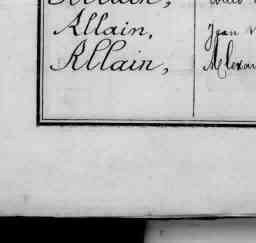 Allain,
Allain, Jean
Allain,